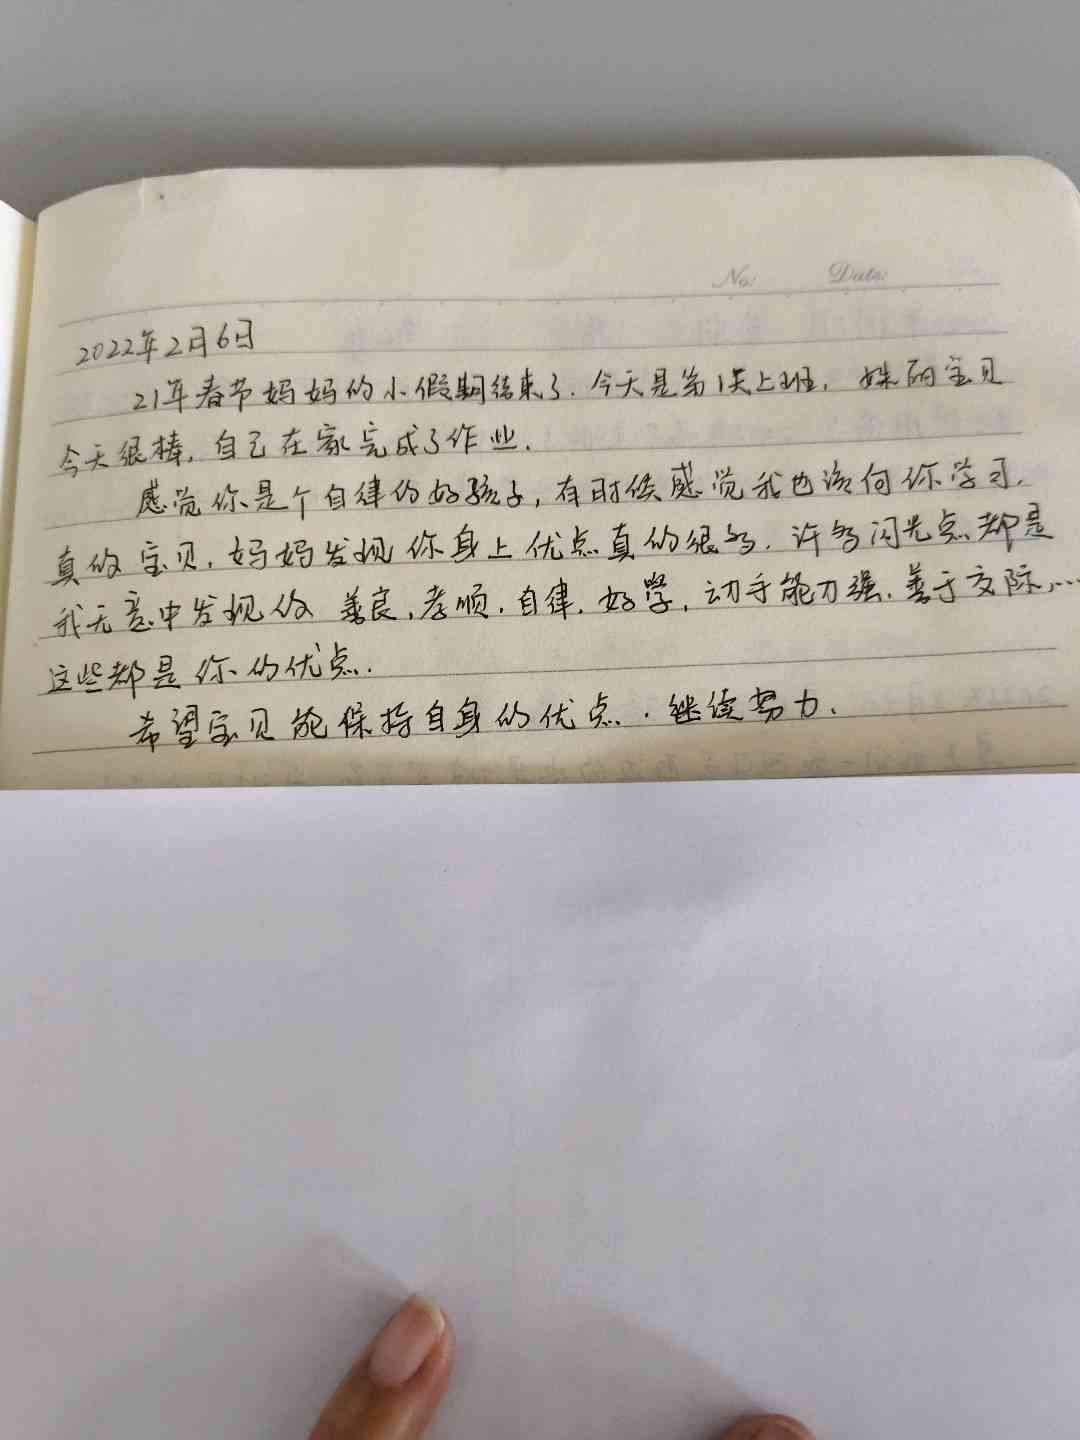 No: Date:
2022年2月6日
21年春节妈妈的小假期结束了.今天是第1天上班,姝丽宝贝
今天很棒,自己在家完成了作业.
感觉你是个自律的好孩子,有时候感觉我也该向你学习.
真的宝贝,妈妈发现你身上优点真的很多.许多闪光点都是
我无意中发现的 善良,孝顺,自律,好学,动手能力强.善于交际,...
这些都是你的优点.
希望宝贝能保持自身的优点.继续努力.